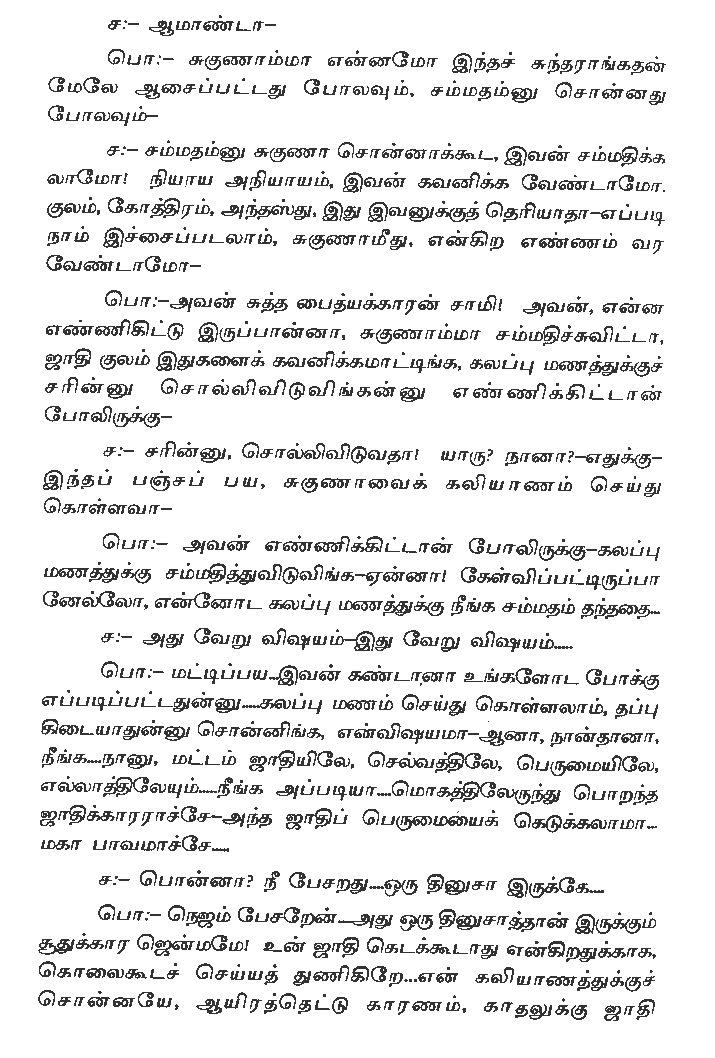 ச:– ஆமாண்டா–
பொ:– சுகுணாம்மா என்னமோ இந்தச் சுந்தராங்கதன்
மேலே ஆசைப்பட்டது போலவும், சம்மதம்னு சொன்னது
போலவும்–
ச:– சம்மதம்னு சுகுணா சொன்னாக்கூட, இவன் சம்மதிக்க
லாமோ! நியாய அநியாயம், இவன் கவனிக்க வேண்டாமோ.
குலம், கோத்திரம், அந்தஸ்து, இது இவனுக்குத் தெரியாதா–எப்படி
நாம் இச்சைப்படலாம், சுகுணாமீது, என்கிற எண்ணம் வர
வேண்டாமோ–
பொ:–அவன் சுத்த பைத்யக்காரன் சாமி! அவன், என்ன
எண்ணிகிட்டு இருப்பான்னா, சுகுணாம்மா சம்மதிச்சுவிட்டா,
ஜாதி குலம் இதுகளைக் கவனிக்கமாட்டிங்க, கலப்பு மணத்துக்குச்
சரின்னு சொல்லிவிடுவிங்கன்னு எண்ணிக்கிட்டான்
போலிருக்கு–
ச:– சரின்னு, சொல்லிவிடுவதா! யாரு? நானா?–எதுக்கு–
இந்தப் பஞ்சப் பய, சுகுணாவைக் கலியாணம் செய்து
கொள்ளவா–
பொ:– அவன் எண்ணிக்கிட்டான் போலிருக்கு–கலப்பு
மணத்துக்கு சம்மதித்துவிடுவிங்க–ஏன்னா! கேள்விப்பட்டிருப்பா
னேல்லோ, என்னோட கலப்பு மணத்துக்கு நீங்க சம்மதம் தந்ததை...
ச:– அது வேறு விஷயம்–இது வேறு விஷயம்.....
பொ:– மட்டிப்பய...இவன் கண்டானா உங்களோட போக்கு
எப்படிப்பட்டதுன்னு.....கலப்பு மணம் செய்து கொள்ளலாம், தப்பு
கிடையாதுன்னு சொன்னிங்க, என்விஷயமா–ஆனா, நான்தானா,
நீங்க....நானு, மட்டம் ஜாதியிலே, செல்வத்திலே, பெருமையிலே,
எல்லாத்திலேயும்.....நீங்க அப்படியா....மொகத்திலேருந்து பொறந்த
ஜாதிக்காரராச்சே–அந்த ஜாதிப் பெருமையைக் கெடுக்கலாமா...
மகா பாவமாச்சே.....
ச:– பொன்னா? நீ பேசறது....ஒரு தினுசா இருக்கே....
பொ:– நெஜம் பேசறேன்....அது ஒரு தினுசாத்தான் இருக்கும்
சூதுக்கார ஜென்மமே! உன் ஜாதி கெடக்கூடாது என்கிறதுக்காக,
கொலைகூடச் செய்யத் துணிகிறே...என் கலியாணத்துக்குச்
சொன்னயே, ஆயிரத்தெட்டு காரணம், காதலுக்கு ஜாதி